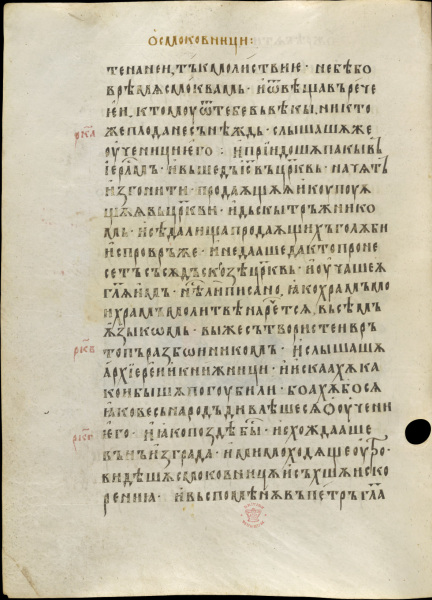 о смоковници:
те на неи, тъкмо листвие · не бѣ бо
врѣмѧ смоквамь · и ѿвѣщавъ рече
еи, к томоу ѿ тебе вь вѣкы никто
же плода не снѣждь · слышашѧ же
оученици его : и прїидошѧ пакы вь
іерⷭ҇лмъ · и вьшедь і҃с въ црк҃вь · начѧть
изгонити · продаѧщѧѧ и коупоуѧ
щѧѧ вь црк҃ви · и дьскы тръжнико
мь · и сѣдалища продаѧщихъ голѧби
испровръже · и не даꙗше да кто проне
сеть съсѧдъ скозѣ црк҃вь · и оучаше ѧ
гл҃ѧ имъ · нѣⷭ҇ ли писано, ꙗко храмъ мо
и храмъ молитвѣ нареⷱ҇тсѧ, вьсѣмъ
ѧзыкомь · вы же сътвористе и врь
топъ разбоиникомъ · и слышашѧ
архїереи и книжници · и искаахѫ ка
ко и бышѧ погоубили · боахѫ бо сѧ
ꙗко весь народъ дивлѣшесѧ ѡ оучени
и его · и ꙗко поздѣ быⷭ҇ · исхождааше
вънъ из града · и мимоходѧще оутро ·
видѣшѧ смоковницѫ исъхшѫ ис ко
рениꙗ · и въспомѣнѫвъ петръ гл҃а
рка
ркв
ркг